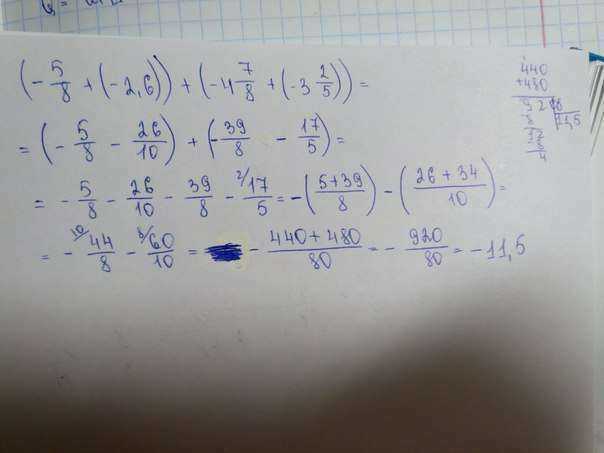 (-5/8 + (-2,6)) + (-4 7/8 + (-3 2/5)) =
= (-5/8 - 26/10) + (-39/8 - 17/5) =
= -5/8 - 26/10 - 39/8 - 2/17/5 = -(5+39/8) - (26+34/10) =
= - 10/44/8 - 8/60/10 = - 440+480/80 = - 920/80 = -11,5
440
+480
92 8
8 11,5
12
8
4